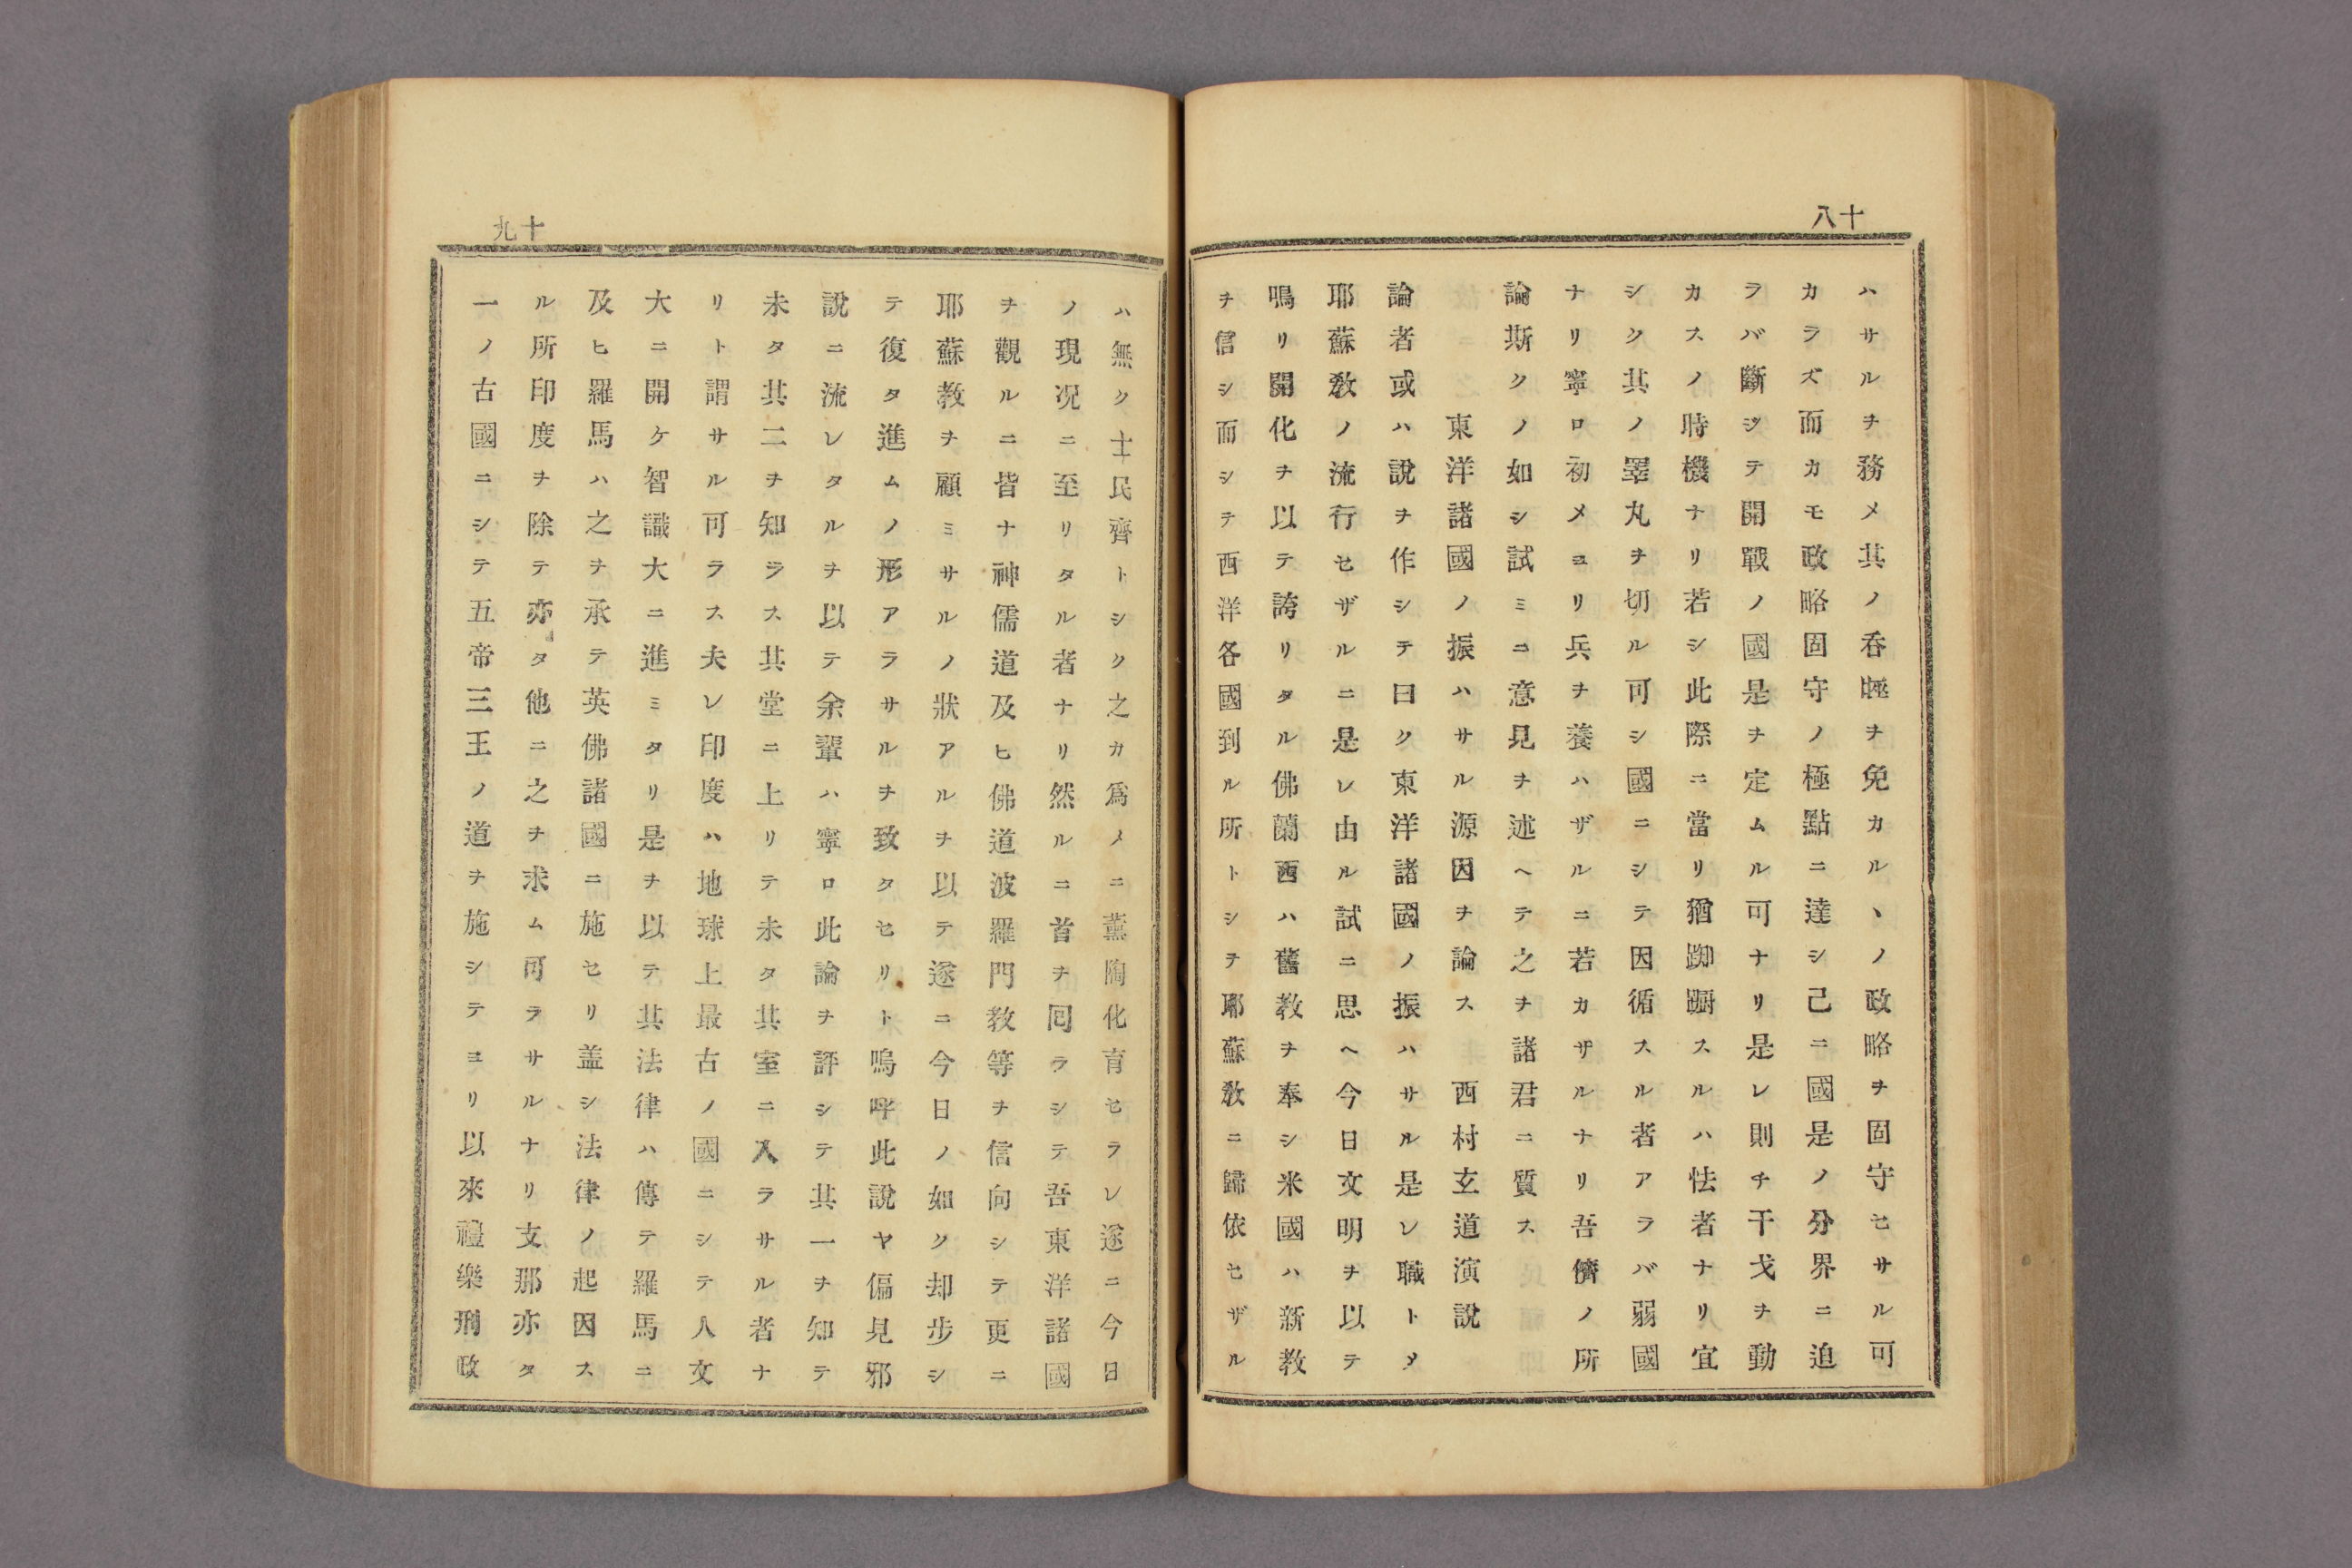 十八
ハサルヲ務メ其ノ呑噬ヲ免カルヽノ政略ヲ固守セサル可
カラズ而カモ政略固守ノ極點ニ達シ己ニ國是ノ分界ニ迫
ラバ斷ジテ開戰ノ國是ヲ定ムル可ナリ是レ則チ干戈ヲ動
カスノ時機ナリ若シ此際ニ當リ猶踟蹰スルハ怯者ナリ宜
シク其ノ睪丸ヲ切ル可シ國ニシテ因循スル者アラバ弱國
ナリ寧ロ初メヨリ兵ヲ養ハザルニ若カザルナリ吾儕ノ所
論斯クノ如シ試ミニ意見ヲ述ヘテ之ヲ諸君ニ質ス
東洋諸國ノ振ハサル源因ヲ論ス 西村玄道演說
論者或ハ說ヲ作シテ曰ク東洋諸國ノ振ハサル是レ職トメ
耶蘇敎ノ流行セザルニ是レ由ル試ニ思ヘ今日文明ヲ以テ
鳴リ開化ヲ以テ誇リタル佛蘭西ハ舊教ヲ奉シ米國ハ新教
ヲ信シ而シテ西洋各國到ル所トシヲ耶蘇敎ニ歸依セザル
十九
ハ無ク士民齊トシク之カ爲メニ薰陶化育セラレ遂ニ今日
ノ現况ニ至リタル者ナリ然ルニ首ヲ回ラシテ吾東洋諸國
ヲ觀ルニ皆ナ神儒道及ヒ佛道波羅門敎等ヲ信向シテ更ニ
耶蘇教ヲ顧ミサルノ狀アルヲ以テ遂ニ今日ノ如ク却步シ
テ復タ進ムノ形アラサルヲ致タセリト嗚呼此說ヤ偏見邪
說ニ流レタルヲ以テ余輩ハ寧ロ此論ヲ評シテ其一ヲ知テ
未タ其二ヲ知ラス其堂ニ上リテ未タ其室ニ入ラサル者ナ
リト謂サルル可ラス夫レ印度ハ地球上最古ノ國ニシテ人文
大ニ開ケ智識大ニ進ミタリ是ヲ以テ其法律ハ傳テ羅馬ニ
及ヒ羅馬ハ之ヲ承テ英佛諸國ニ施セリ盖シ法律ノ起因ス
ル所印度ヲ除テ亦タ他ニ之ヲ求ム可ラサルナリ支那亦タ
一ノ古國ニシテ五帝三王ノ道ヲ施シテヨリ以來禮樂刑政